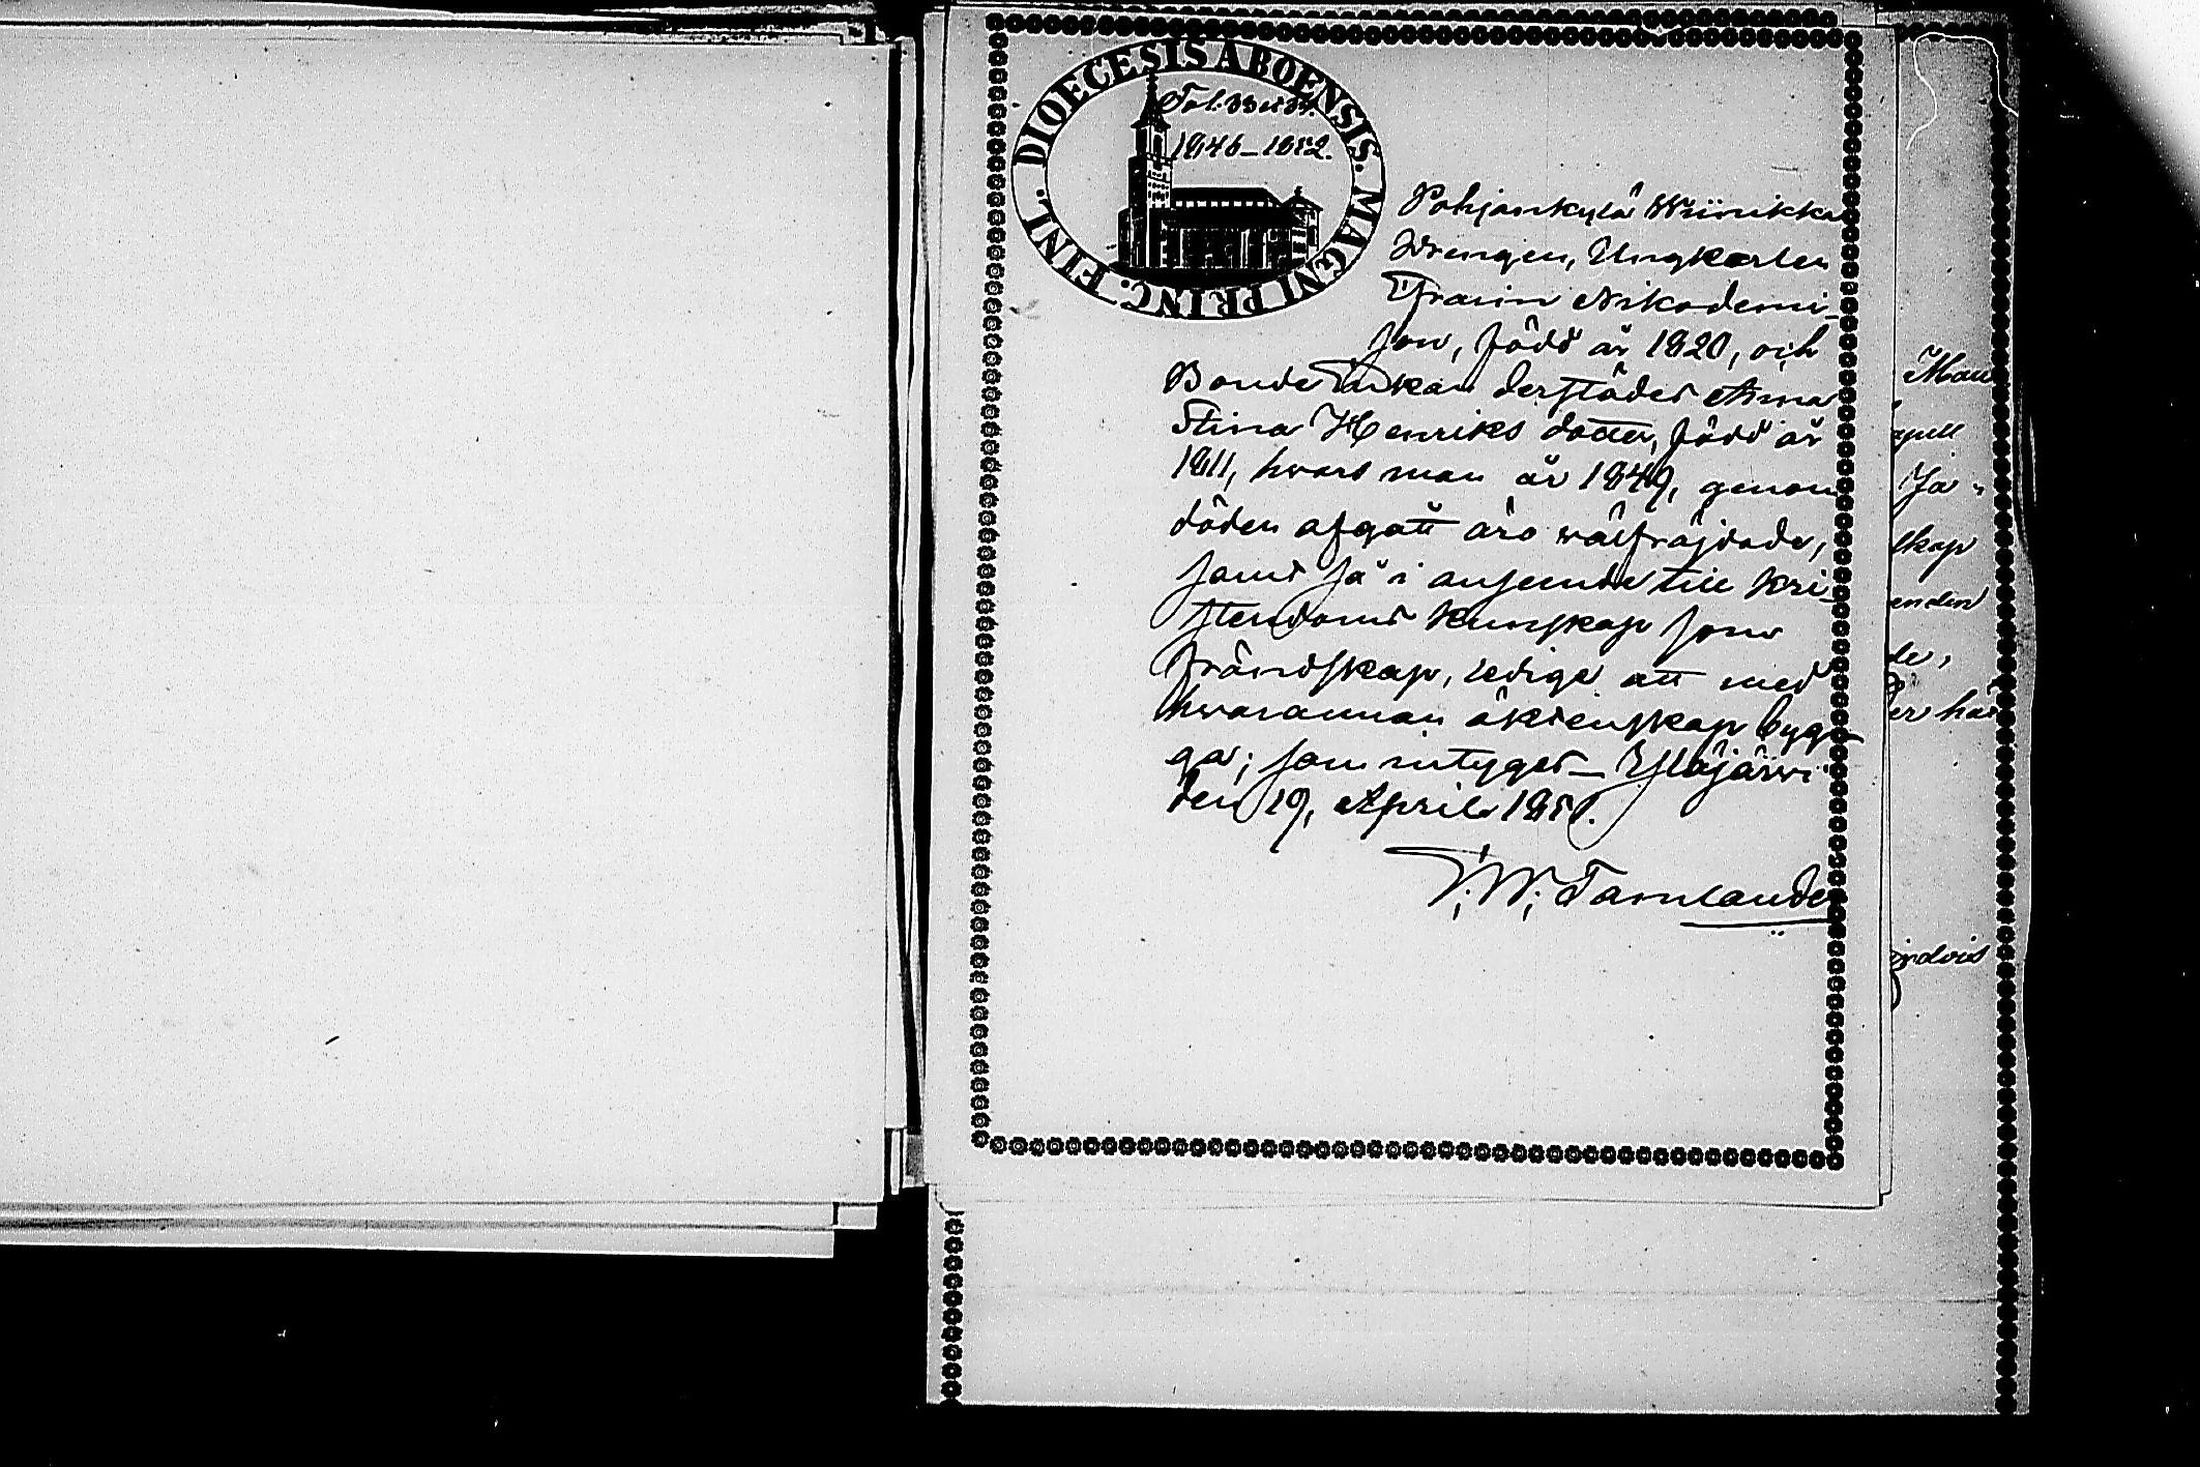 DIOECESIS ABOENSIS. MAGNI PRINC. FINL.
Fol. 33 u 34.
1846–1852.
Pohjankylä Wiinikka
Drengen, Ungkarlen
Efraim Nikodemi
son, född år 1820, och
Bonde Enkan derstädes Anna
Stina Henriks dotter, född år
1811, hvars man år 1849, genom
döden afgått äro wälfräjdade,
samt så i anseende till Kri-
stendoms Kunskap som
frändskap, ledige att med
hvarannan äktenskap byg-
ga; som intygar – Ylöjärwi
den 19, April 1851.
Tamlander
Man
pell
Ja
skap
enden
de,
er har